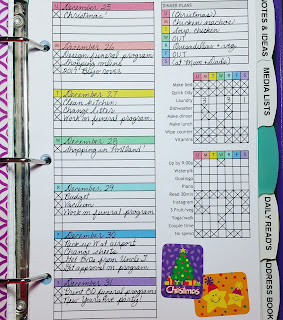 December 25
Christmas!
December 26
Design funeral program
Shopping online
December 27
Clean kitchen
Change litters
Work on funeral program
December 28
Shopping in Portland!
December 29
Budget
Vacuum
Work on funeral program
December 30
Pick up N at airport
Change sheets
Get OKs from Uncle T
Get approval on program
December 31
Print 80 funeral programs
New Year's Eve party!
DINNER PLANS
S (Christmas)
M Chicken nachos
T Soup, chicken
W OUT
F Quesadillas + veg
S (at Mom + Dad's)
S M T W T F S
Make bed
Quick tidy
Laundry 3 3
Dishwasher
Make dinner
Make lunch
Wipe counter
Vitamins
S M T W T F S
Up by 9:00a
Watercolor
Duolingo
Piano
Read 30min
Instagram
3 Fruit/veg
Yoga/walk
Couple time
No igmo
Christmas
NOTES & IDEAS
MEDIA LISTS
DAILY READ'S
ADDRESS BOOK